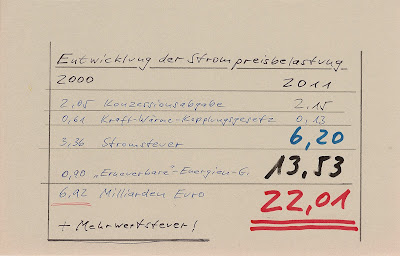 Entwicklung der Strompreisbelastung
2000 2011
2,05 Konzessionsabgabe 2,15
0,61 Kraft-Wärme-Kopplungsgesetz 0,13
3,36 Stromsteuer 6,20
0,90 „Erneuerbare"-Energien-G. 13,53
6,92 Milliarden Euro 22,01
+ Mehrwertsteuer!